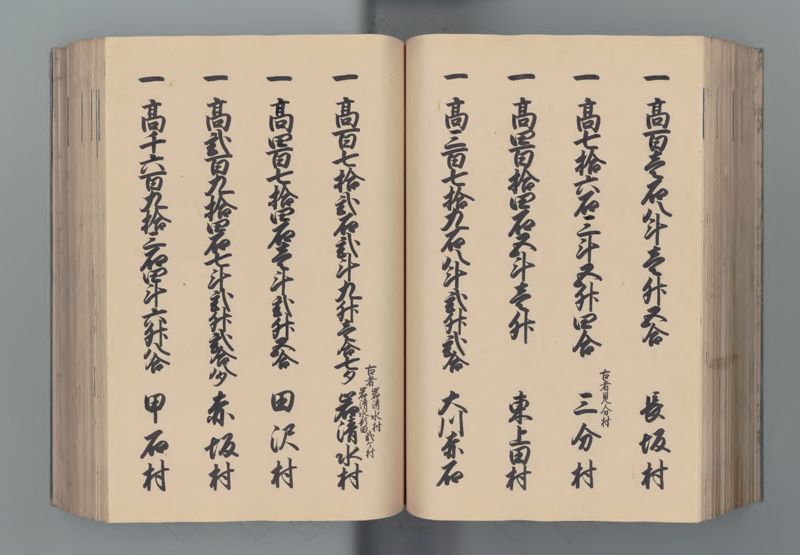 一 高百壱石八斗壱升五合 長坂村
古者見分村
一 高七拾六石三斗五升四合 三分村
一 高四百拾四石五斗壱升 東上田村
一 高三百七拾九石八斗弐升弐合 大川赤石
古者岩清水村
岩清水新田弐ヶ村
一 高百七拾弐石弐斗九升壱合七夕 岩清水村
一 高四百七拾四石壱斗弐升五合 田沢村
一 高弐百九拾四石七斗弐升弐合八夕 赤坂村
一 高千六百九拾三石四斗六升八合 甲石村